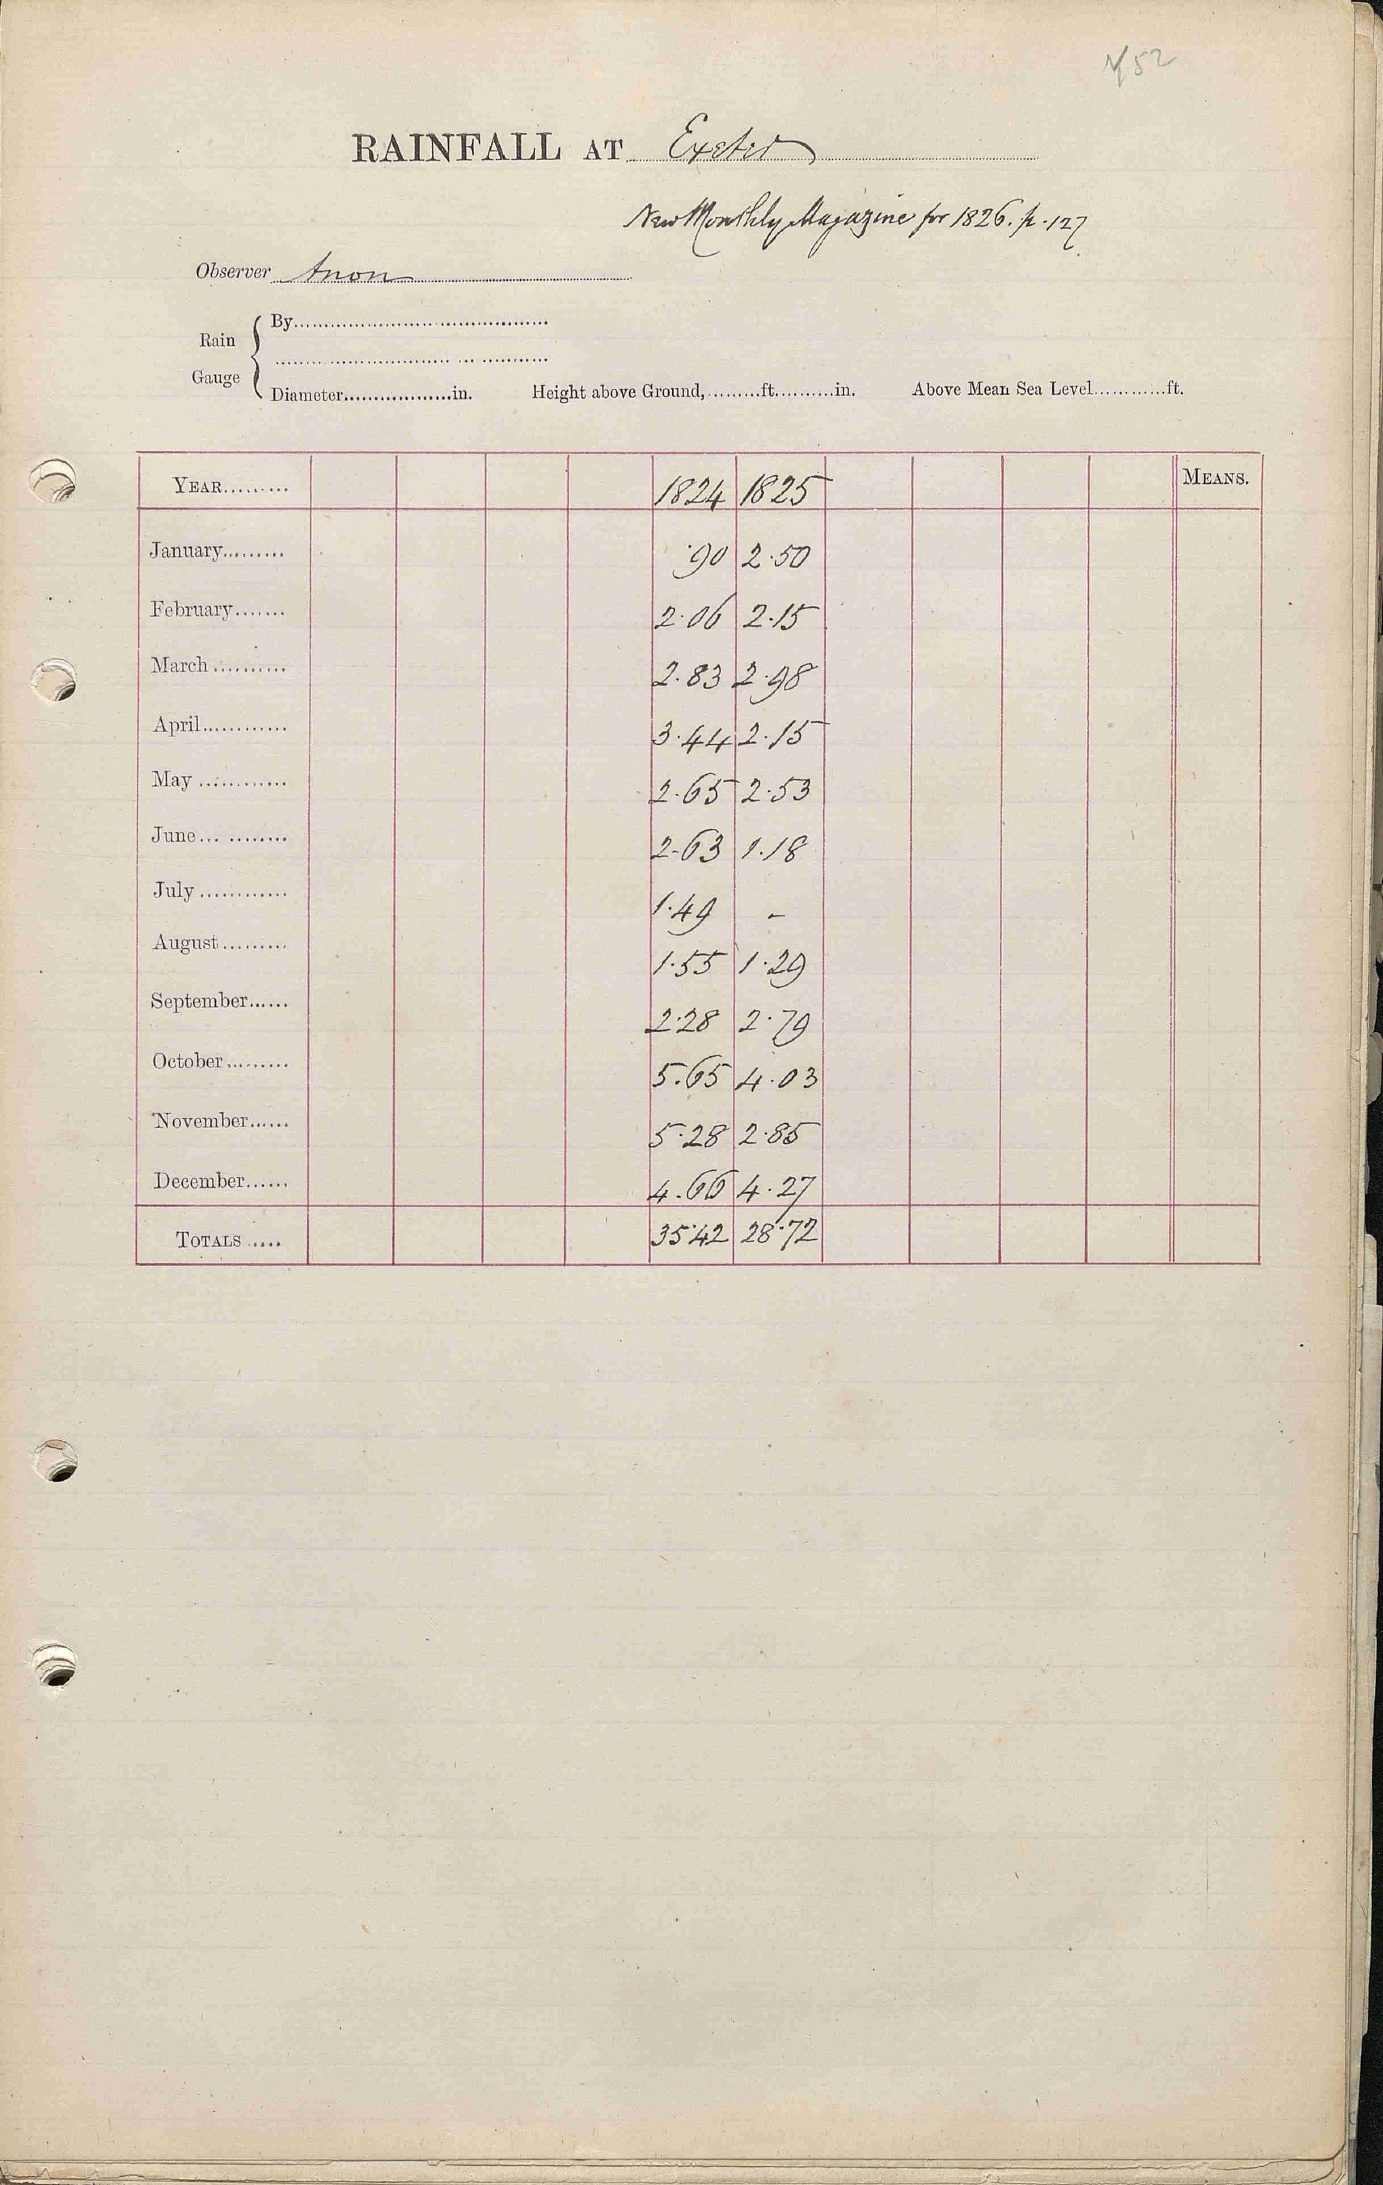 √52
RAINFALL AT Exeter
New Monthly Magazine for 1826. p. 127
Observer Anon
Rain Gauge
By
Diameter in. Height above Ground, ft. in. Above Mean Sea Level ft.
YEAR 1824 1825 MEANS.
January ·90 2·50
February 2·06 2·15
March 2·83 2·98
April 3·44 2·15
May 2·65 2·53
June 2·63 1·18
July 1·49 –
August 1·55 1·29
September 2·28 2·79
October 5·65 4·03
November 5·28 2·85
December 4·66 4·27
TOTALS 35·42 28·72